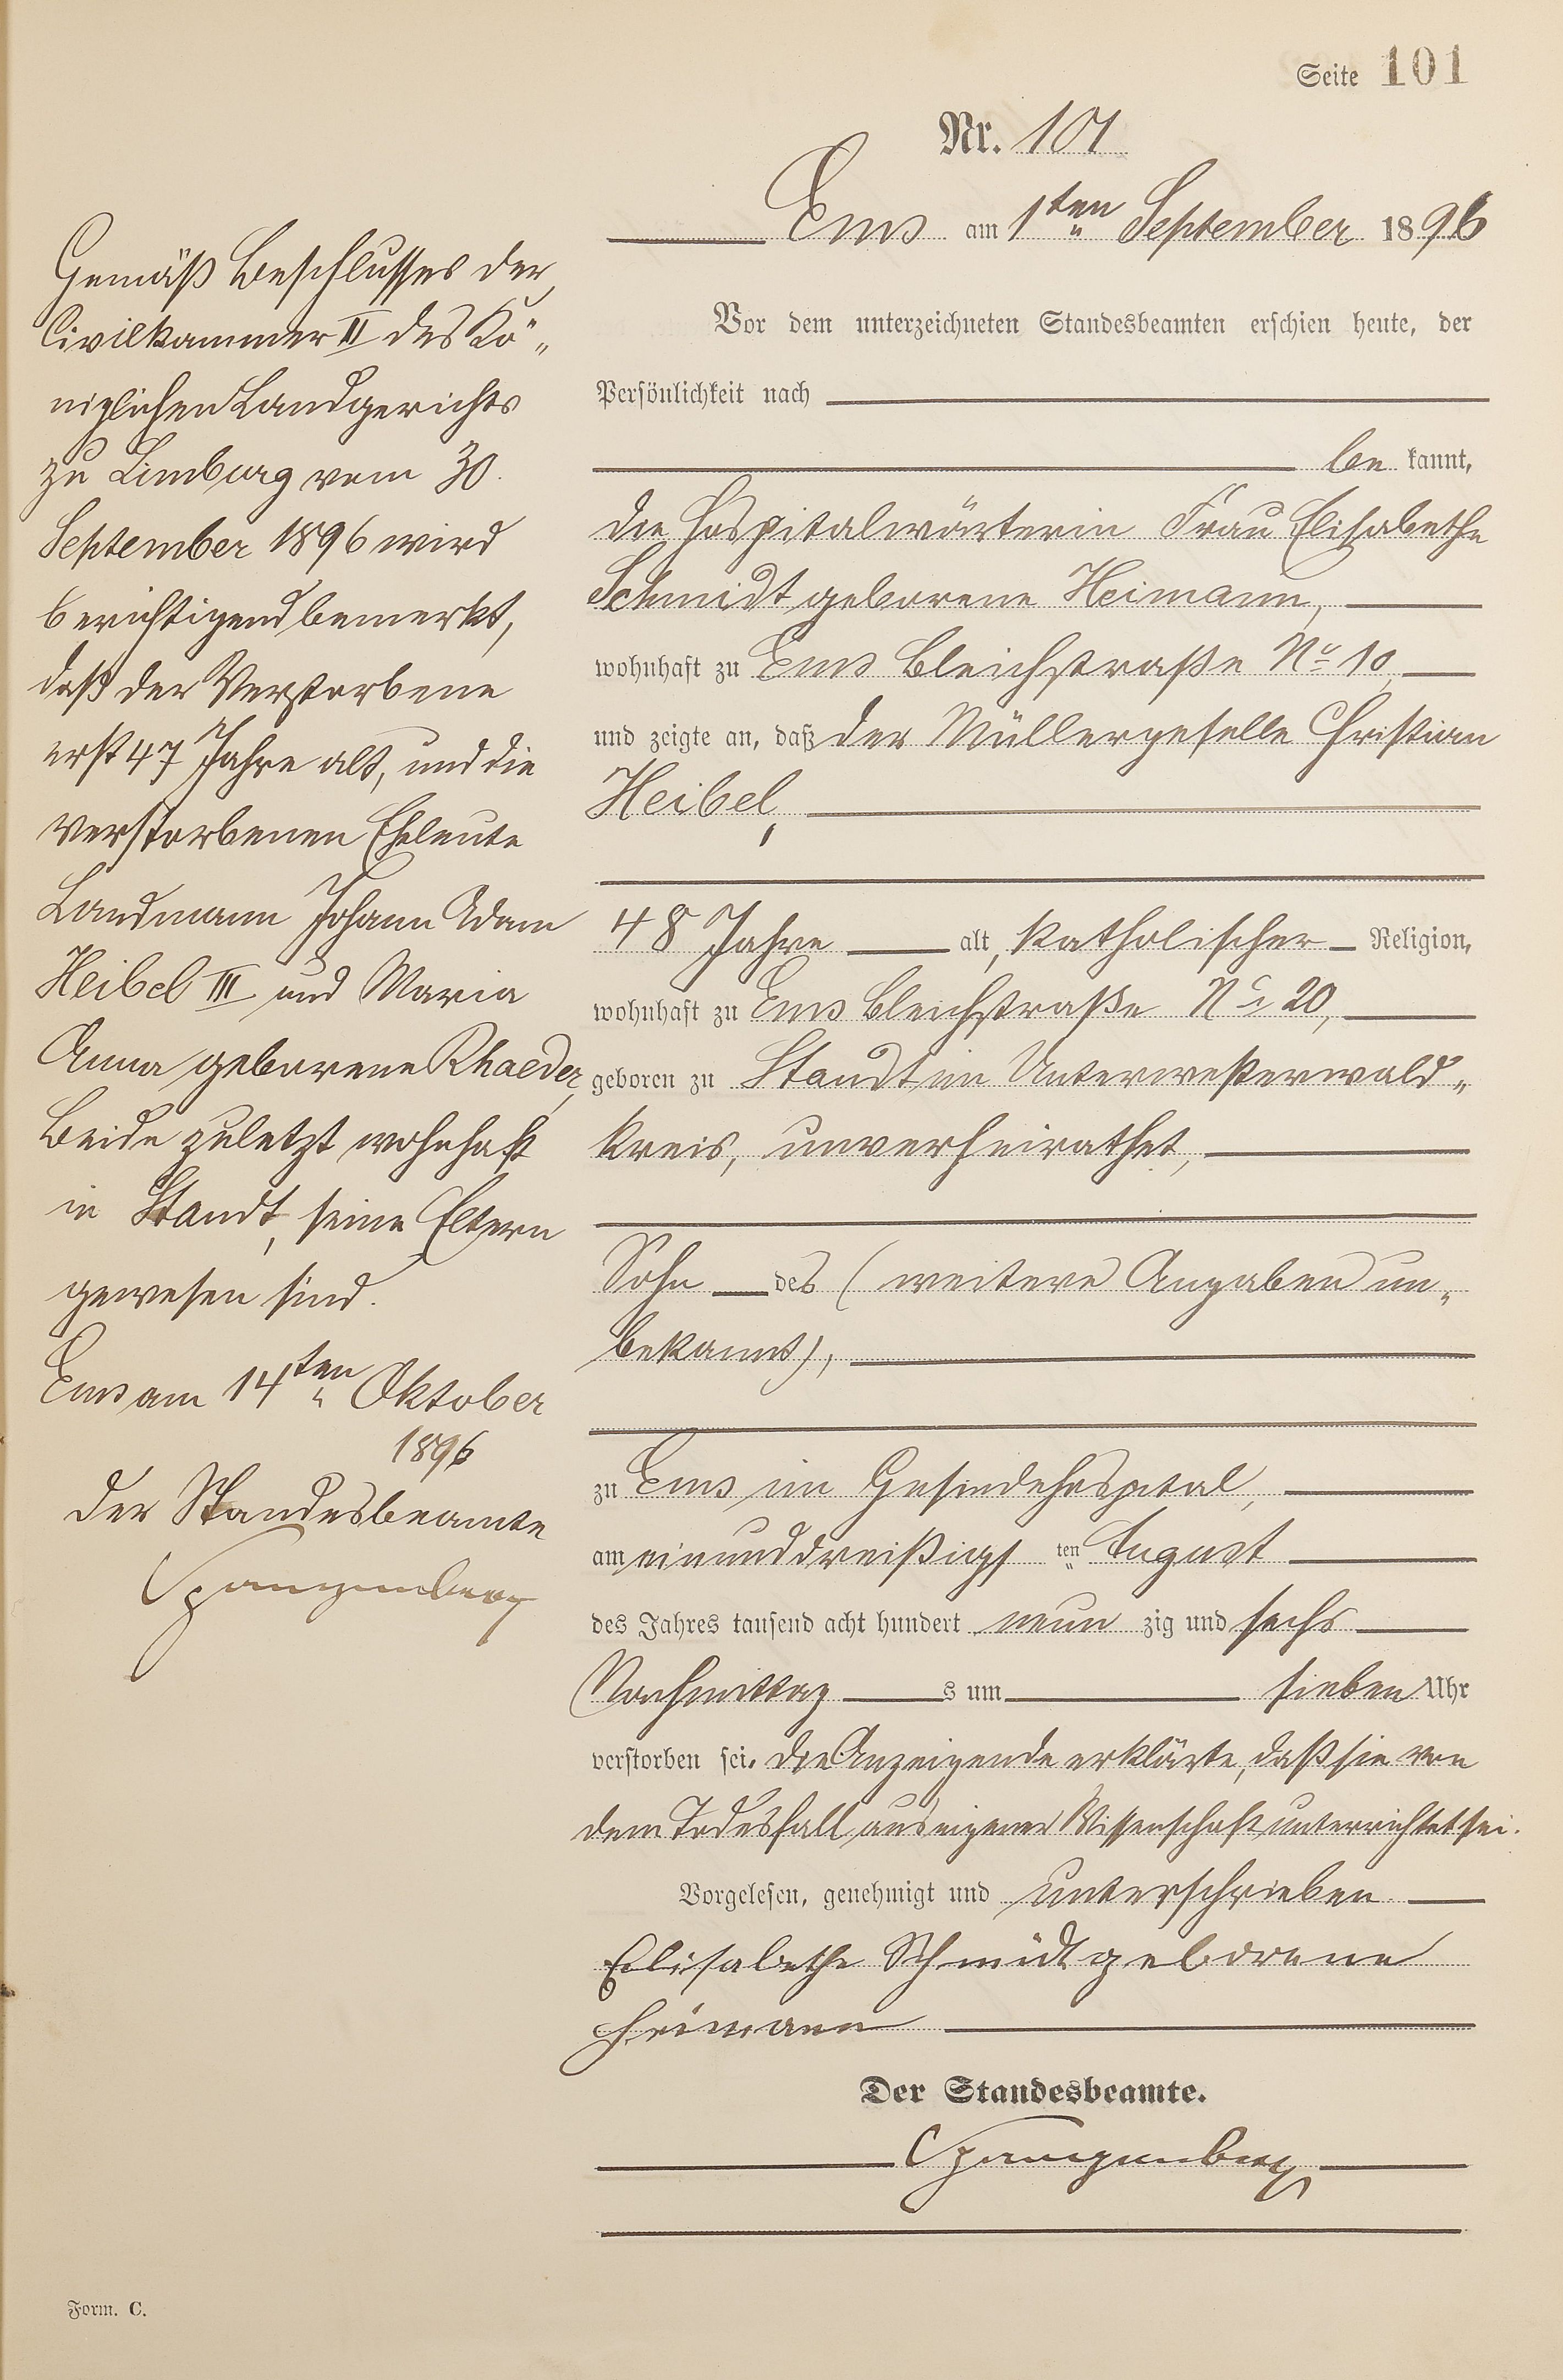 Seite 101
Nr. 101
Ems am 1ten September 1896
Vor dem unterzeichneten Standesbeamten erschien heute, der
Persönlichkeit nach
be kannt,
die Hospitalwärterin Frau Elisabethe
Schmidt geborene Heimann,
wohnhaft zu Ems Bleichstraße No 10,
und zeigte an, daß der Müllergeselle Christian
Heibel,
48 Jahre alt, katholischer Religion,
wohnhaft zu Ems Bleichstraße No 20,
geboren zu Staudt im Unterwesterwald„
kreis, unverheirathet,
Sohn des (weitere Angaben un„
bekannt),
zu Ems im Gesindehospital,
am einunddreißigs ten August
des Jahres tausend acht hundert neun zig und sechs
Nachmittag s um sieben Uhr
verstorben sei. Die Anzeigende erklärte, daß sie von
dem Todesfall aus eigener Wissenschaft unterrichtet sei.
Vorgelesen, genehmigt und unterschrieben
Elisabethe Schmidt geborene
Heimann
Der Standesbeamte.
Spangenberg
Gemäß Beschlusses der
Civilkammer II des Kö„
niglichen Landgerichts
zu Limburg vom 30.
September 1896 wird
berichtigend bemerkt,
daß der Verstorbene
erst 47 Jahre alt, und die
verstorbenen Eheleute
Landmann Johann Adam
Heibel III und Maria
Anna geborene Rhaeder,
Beide zuletzt wohnhaft
in Staudt, seine Eltern
gewesen sind.
Ems am 14ten Oktober
1896
Der Standesbeamte
Spangenberg
Form. C.